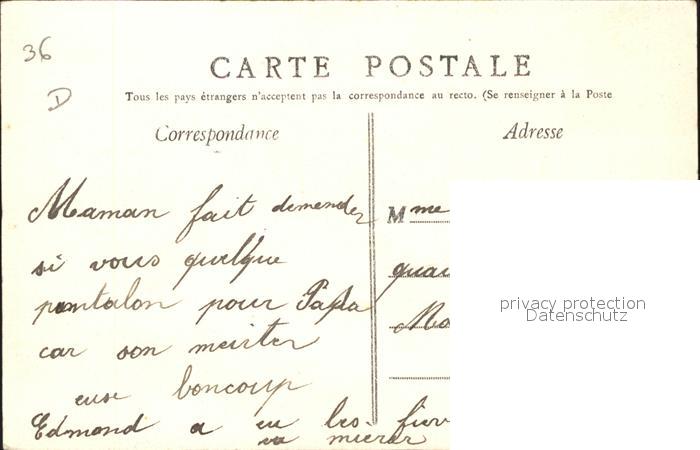 36
D
CARTE POSTALE
Tous les pays étrangers n'acceptent pas la correspondance au recto. (Se renseigner à la Poste
Correspondance
Adresse
Maman fait demender
si vous quelque
pantalon pour Papa
car son meister
euse boncoup
Edmond a eu les fièv
va mieux
Mme
quai
privacy protection
Datenschutz